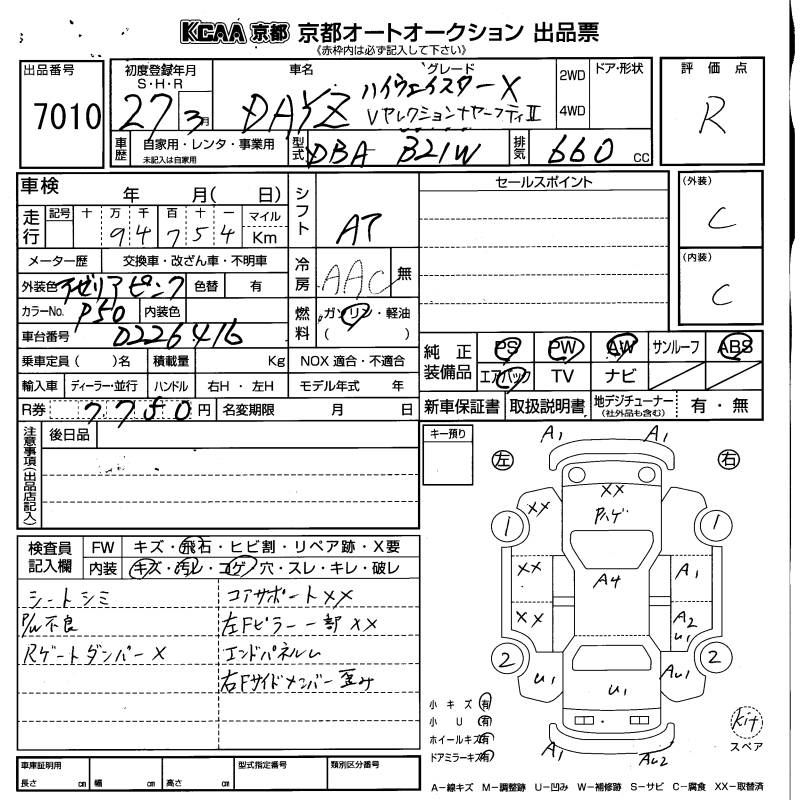 KCAA 京都 京都オートオークション 出品票
《赤枠内は必ず記入して下さい》
出品番号
7010
初度登録年月
S・H・R
27 3月
車名
DAYZ
グレード
ハイウェイスターX
Vセレクション+セーフティII
2WD
4WD
ドア・形状
評価点
R
車歴
自家用・レンタ・事業用
未記入は自家用
型式
DBA B21W
排気
660 cc
車検 年 月( 日)
走行
記号 十 万 千 百 十 一
94754
マイル
Km
メーター歴 交換車・改ざん車・不明車
外装色
色替 有
カラーNo. P50 内装色
車台番号 0226416
乗車定員( )名 積載量 Kg
輸入車 ディーラー・並行 ハンドル 右H・左H
R券 7780 円 名変期限 月 日
シフト AT
冷房 AAC 無
燃料 ガソリン・軽油
( )
NOX適合・不適合
モデル年式 年
セールスポイント
(外装)
C
(内装)
C
純正装備品
PS PW AW サンルーフ ABS
エアバック TV ナビ
新車保証書 取扱説明書 地デジチューナー
(社外品も含む) 有・無
注意事項(出品店記入)
後日品
キー預り
検査員記入欄
FW キズ・飛石・ヒビ割・リペア跡・X要
内装 キズ・汚レ・コゲ・穴・スレ・キレ・破レ
シートシミ
P/W不良
RゲートダンパーX
コアサポートXX
左Fピラー一部XX
エンドパネルU
右Fサイドメンバー歪み
左
右
A1 A1
XX
XX
ハゲ
1 1
XX
A4
A1
XX
A2
U1
2 2
U1
U1
AU1
A1
AU2
小キズ 有
小U 有
ホイールキズ 有
ドアミラーキズ 有
Kit
スペア
車庫証明用
長さ cm 幅 cm 高さ cm
型式指定番号
類別区分番号
A−線キズ M−調整跡 U−凹み W−補修跡 S−サビ C−腐食 XX−取替済